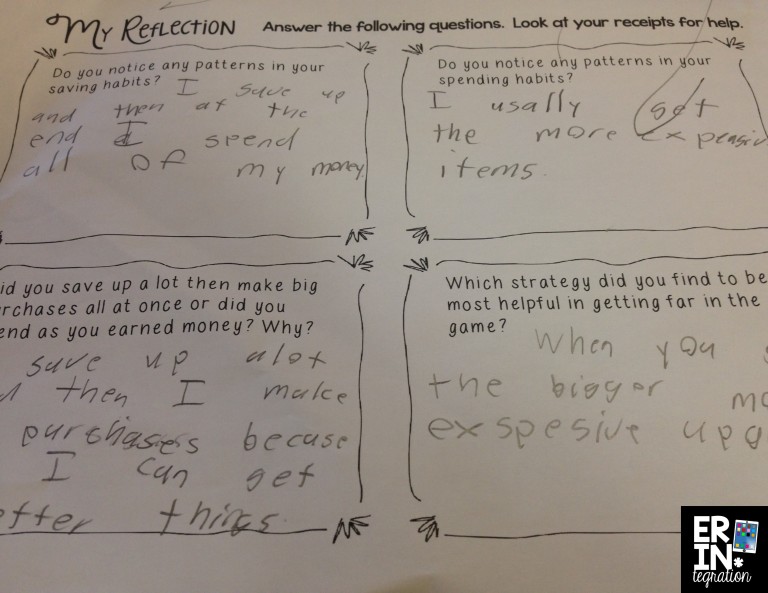 My Reflection Answer the following questions. Look at your receipts for help.
Do you notice any patterns in your
saving habits? I save up
and then at the
end I spend
all of my money.
Do you notice any patterns in your
spending habits?
I usally get
the more expensiv
items.
id you save up a lot then make big
rchases all at once or did you
end as you earned money? Why?
save up alot
then I make
purchasers becuse
I can get
etter things.
Which strategy did you find to be
most helpful in getting far in the
game?
When you
the bigger mo
exspesive upg
ERIN*
tegration